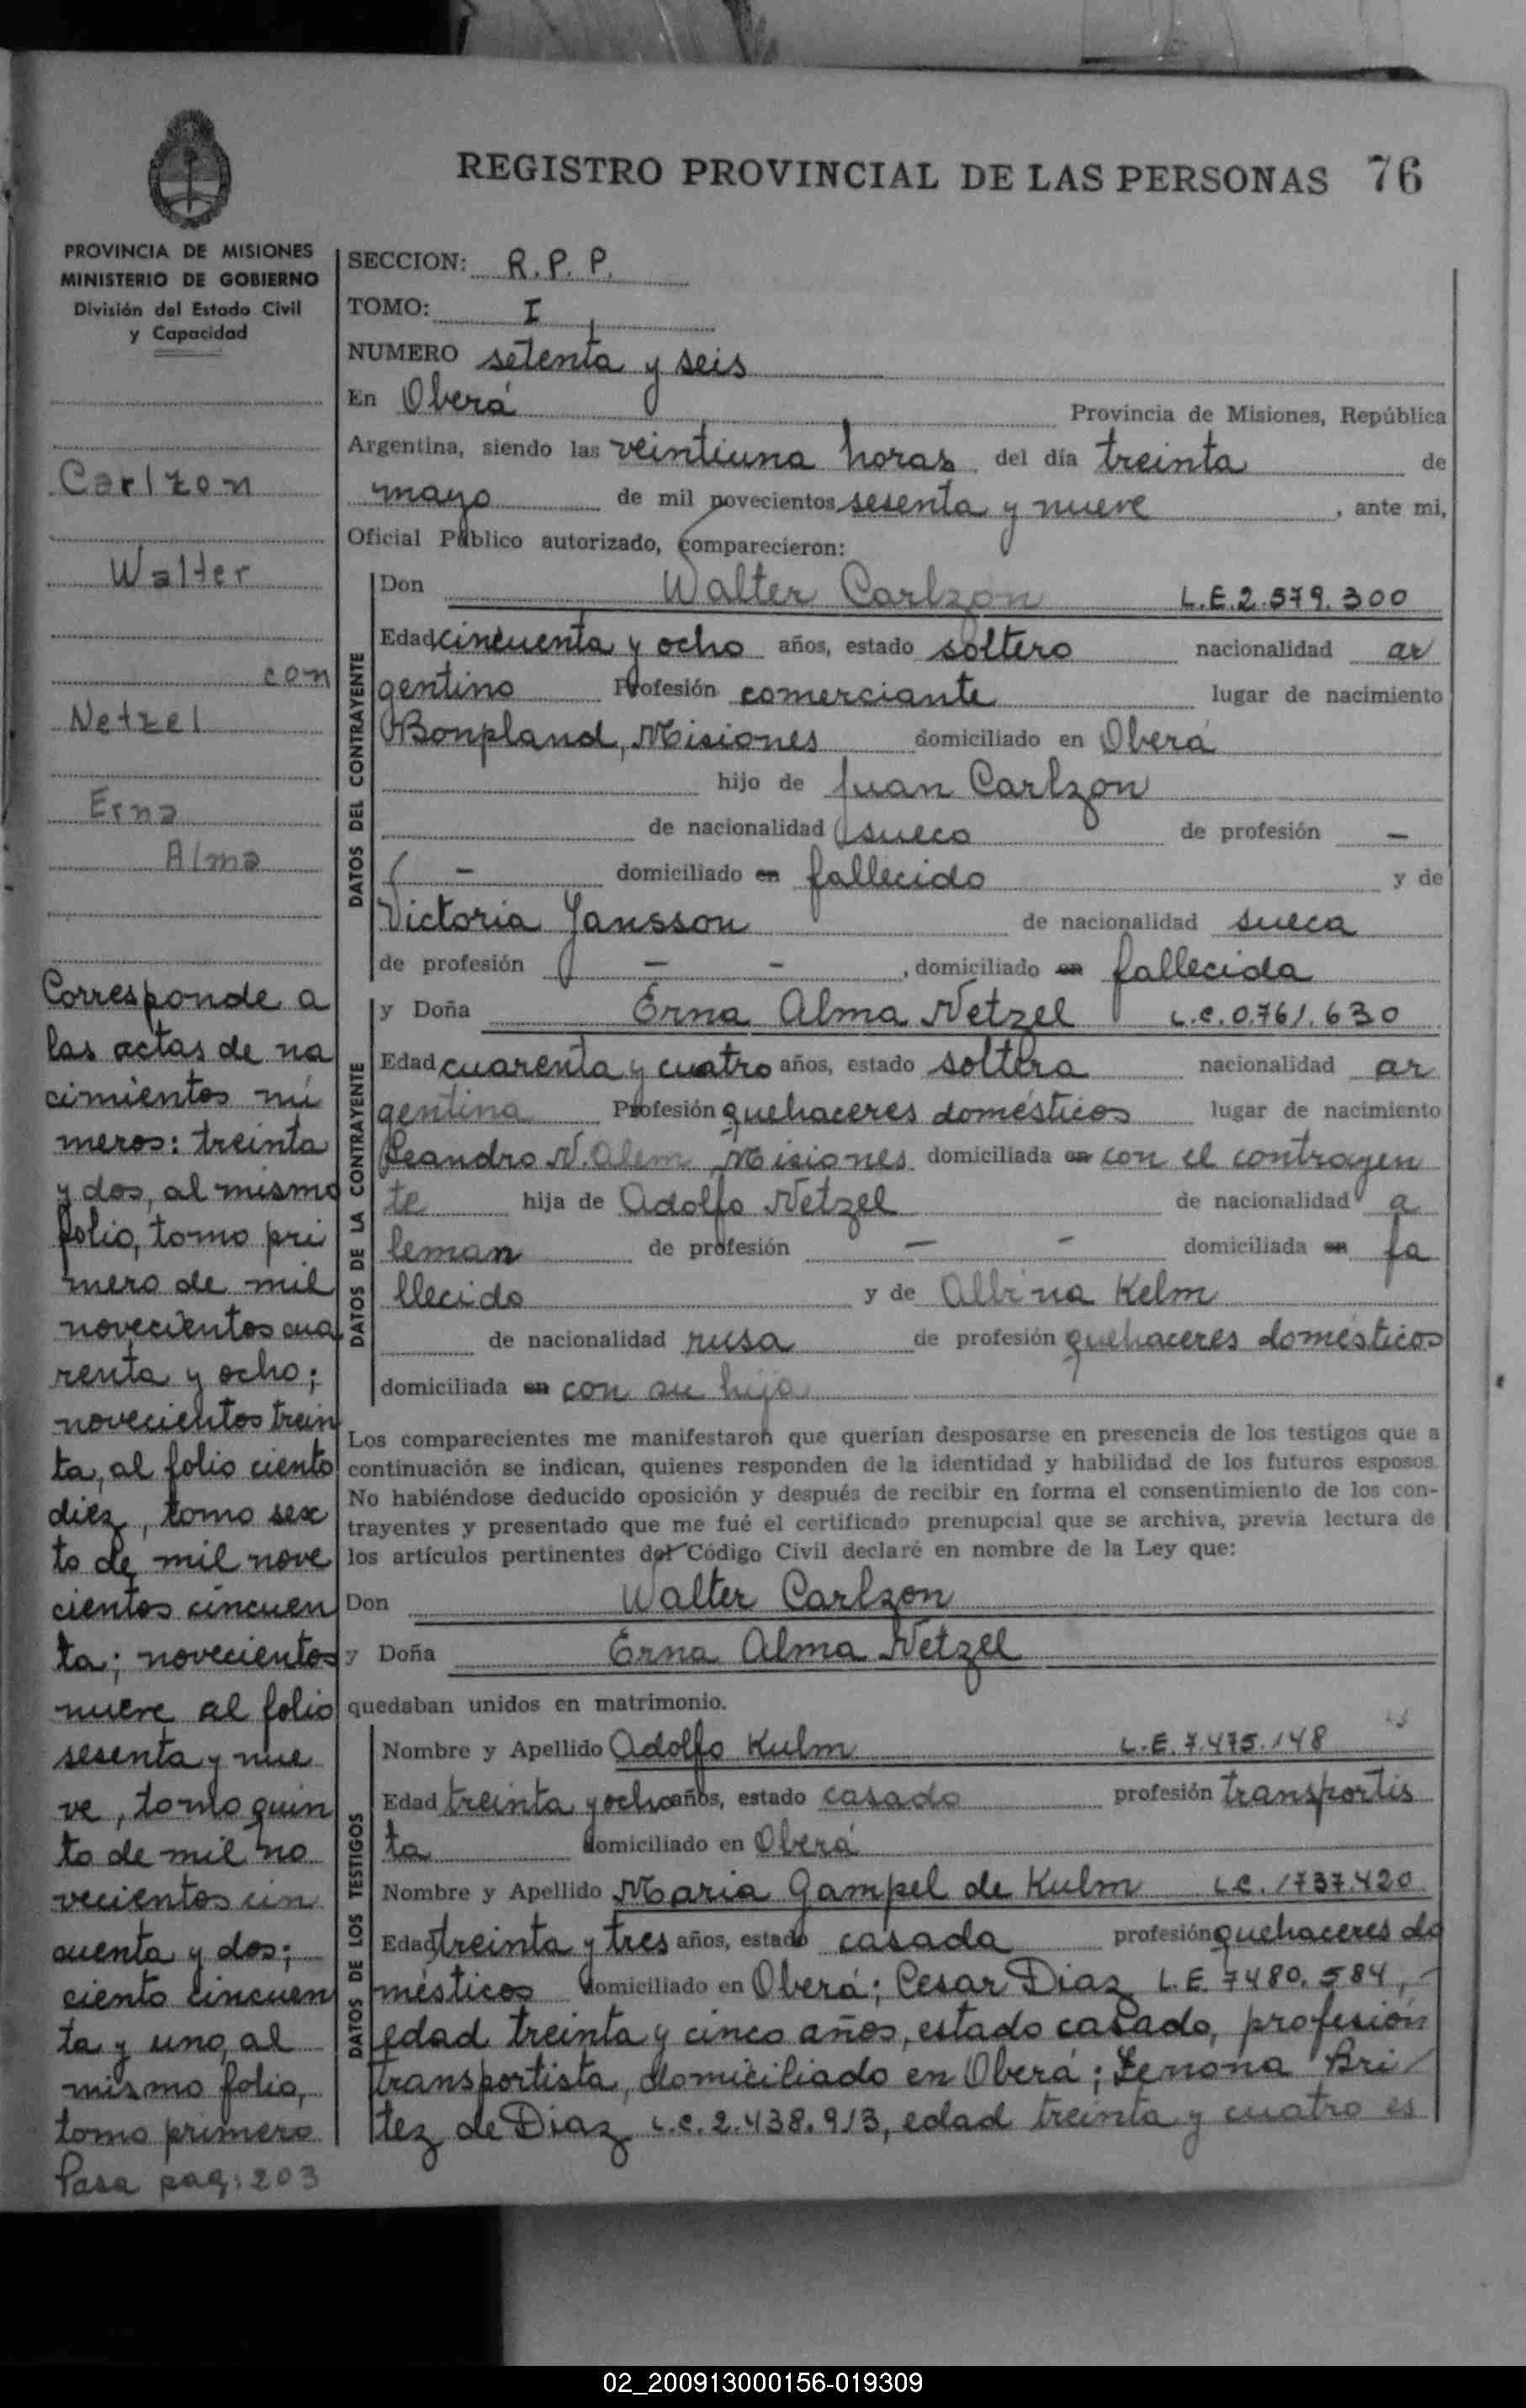 REGISTRO PROVINCIAL DE LAS PERSONAS 76
PROVINCIA DE MISIONES
MINISTERIO DE GOBIERNO
División del Estado Civil
y Capacidad
Carlzon
Walter
con
Netzel
Erna
Alma
Corresponde a
las actas de na
cimientos nú
meros: treinta
y dos, al mismo
folio, tomo pri
mero de mil
novecientos cua
renta y ocho;
novecientos trein
ta, al folio ciento
diez, tomo sex
to de mil nove
cientos cincuen
ta; novecientos
nueve al folio
sesenta y nue
ve, tomo quin
to de mil no
vecientos cin
cuenta y dos;
ciento cincuen
ta y uno, al
mismo folio,
tomo primero
Pasa pag: 203
SECCION: R. P. P.
TOMO: I
NUMERO setenta y seis
En Oberá Provincia de Misiones, República
Argentina, siendo las veintiuna horas del día treinta de
mayo de mil novecientos sesenta y nueve, ante mi,
Oficial Público autorizado, comparecieron:
DATOS DEL CONTRAYENTE
Don Walter Carlzon L.E. 2.579.300
Edad cincuenta y ocho años, estado soltero nacionalidad ar
gentino Profesión comerciante lugar de nacimiento
Bonpland, Misiones domiciliado en Oberá
hijo de Juan Carlzon
de nacionalidad sueco de profesión –
– domiciliado en fallecido y de
Victoria Jansson de nacionalidad sueca
de profesión – – , domiciliado en fallecida
DATOS DE LA CONTRAYENTE
y Doña Erna Alma Netzel L.C. 0.761.630
Edad cuarenta y cuatro años, estado soltera nacionalidad ar
gentina Profesión quehaceres domésticos lugar de nacimiento
Leandro N. Alem Misiones domiciliada en con el contrayen
te hija de Adolfo Netzel de nacionalidad a
leman de profesión – – domiciliada en fa
llecido y de Albina Kelm
de nacionalidad rusa de profesión quehaceres domésticos
domiciliada en con su hija
Los comparecientes me manifestaron que querían desposarse en presencia de los testigos que a
continuación se indican, quienes responden de la identidad y habilidad de los futuros esposos.
No habiéndose deducido oposición y después de recibir en forma el consentimiento de los con-
trayentes y presentado que me fué el certificado prenupcial que se archiva, previa lectura de
los artículos pertinentes del Código Civil declaré en nombre de la Ley que:
Don Walter Carlzon
y Doña Erna Alma Netzel
quedaban unidos en matrimonio.
DATOS DE LOS TESTIGOS
Nombre y Apellido Adolfo Kulm L.E. 7.475.148
Edad treinta y ocho años, estado casado profesión transportis
ta domiciliado en Oberá
Nombre y Apellido Maria Gampel de Kulm L.C. 1737.420
Edad treinta y tres años, estado casada profesión quehaceres do
mésticos domiciliado en Oberá; Cesar Diaz L.E. 7480.584,
edad treinta y cinco años, estado casado, profesión
transportista, domiciliado en Oberá; Bri
tez de Diaz L.C. 2.438.913, edad treinta y cuatro es
02_200913000156-019309